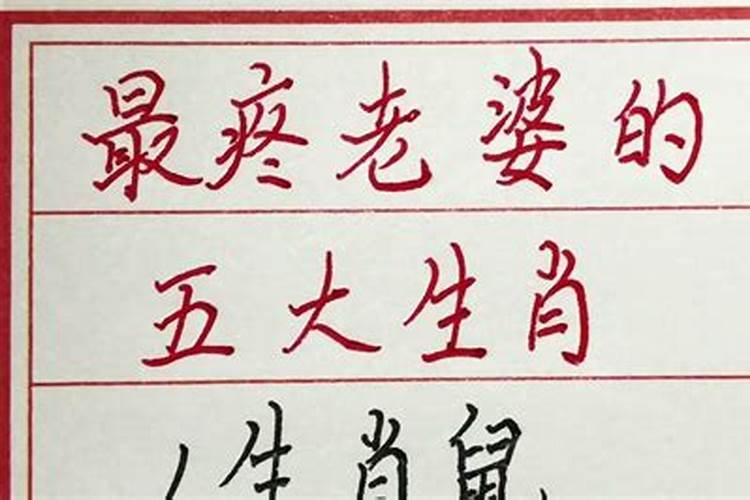 最疼老婆的
五大生肖
1生肖鼠